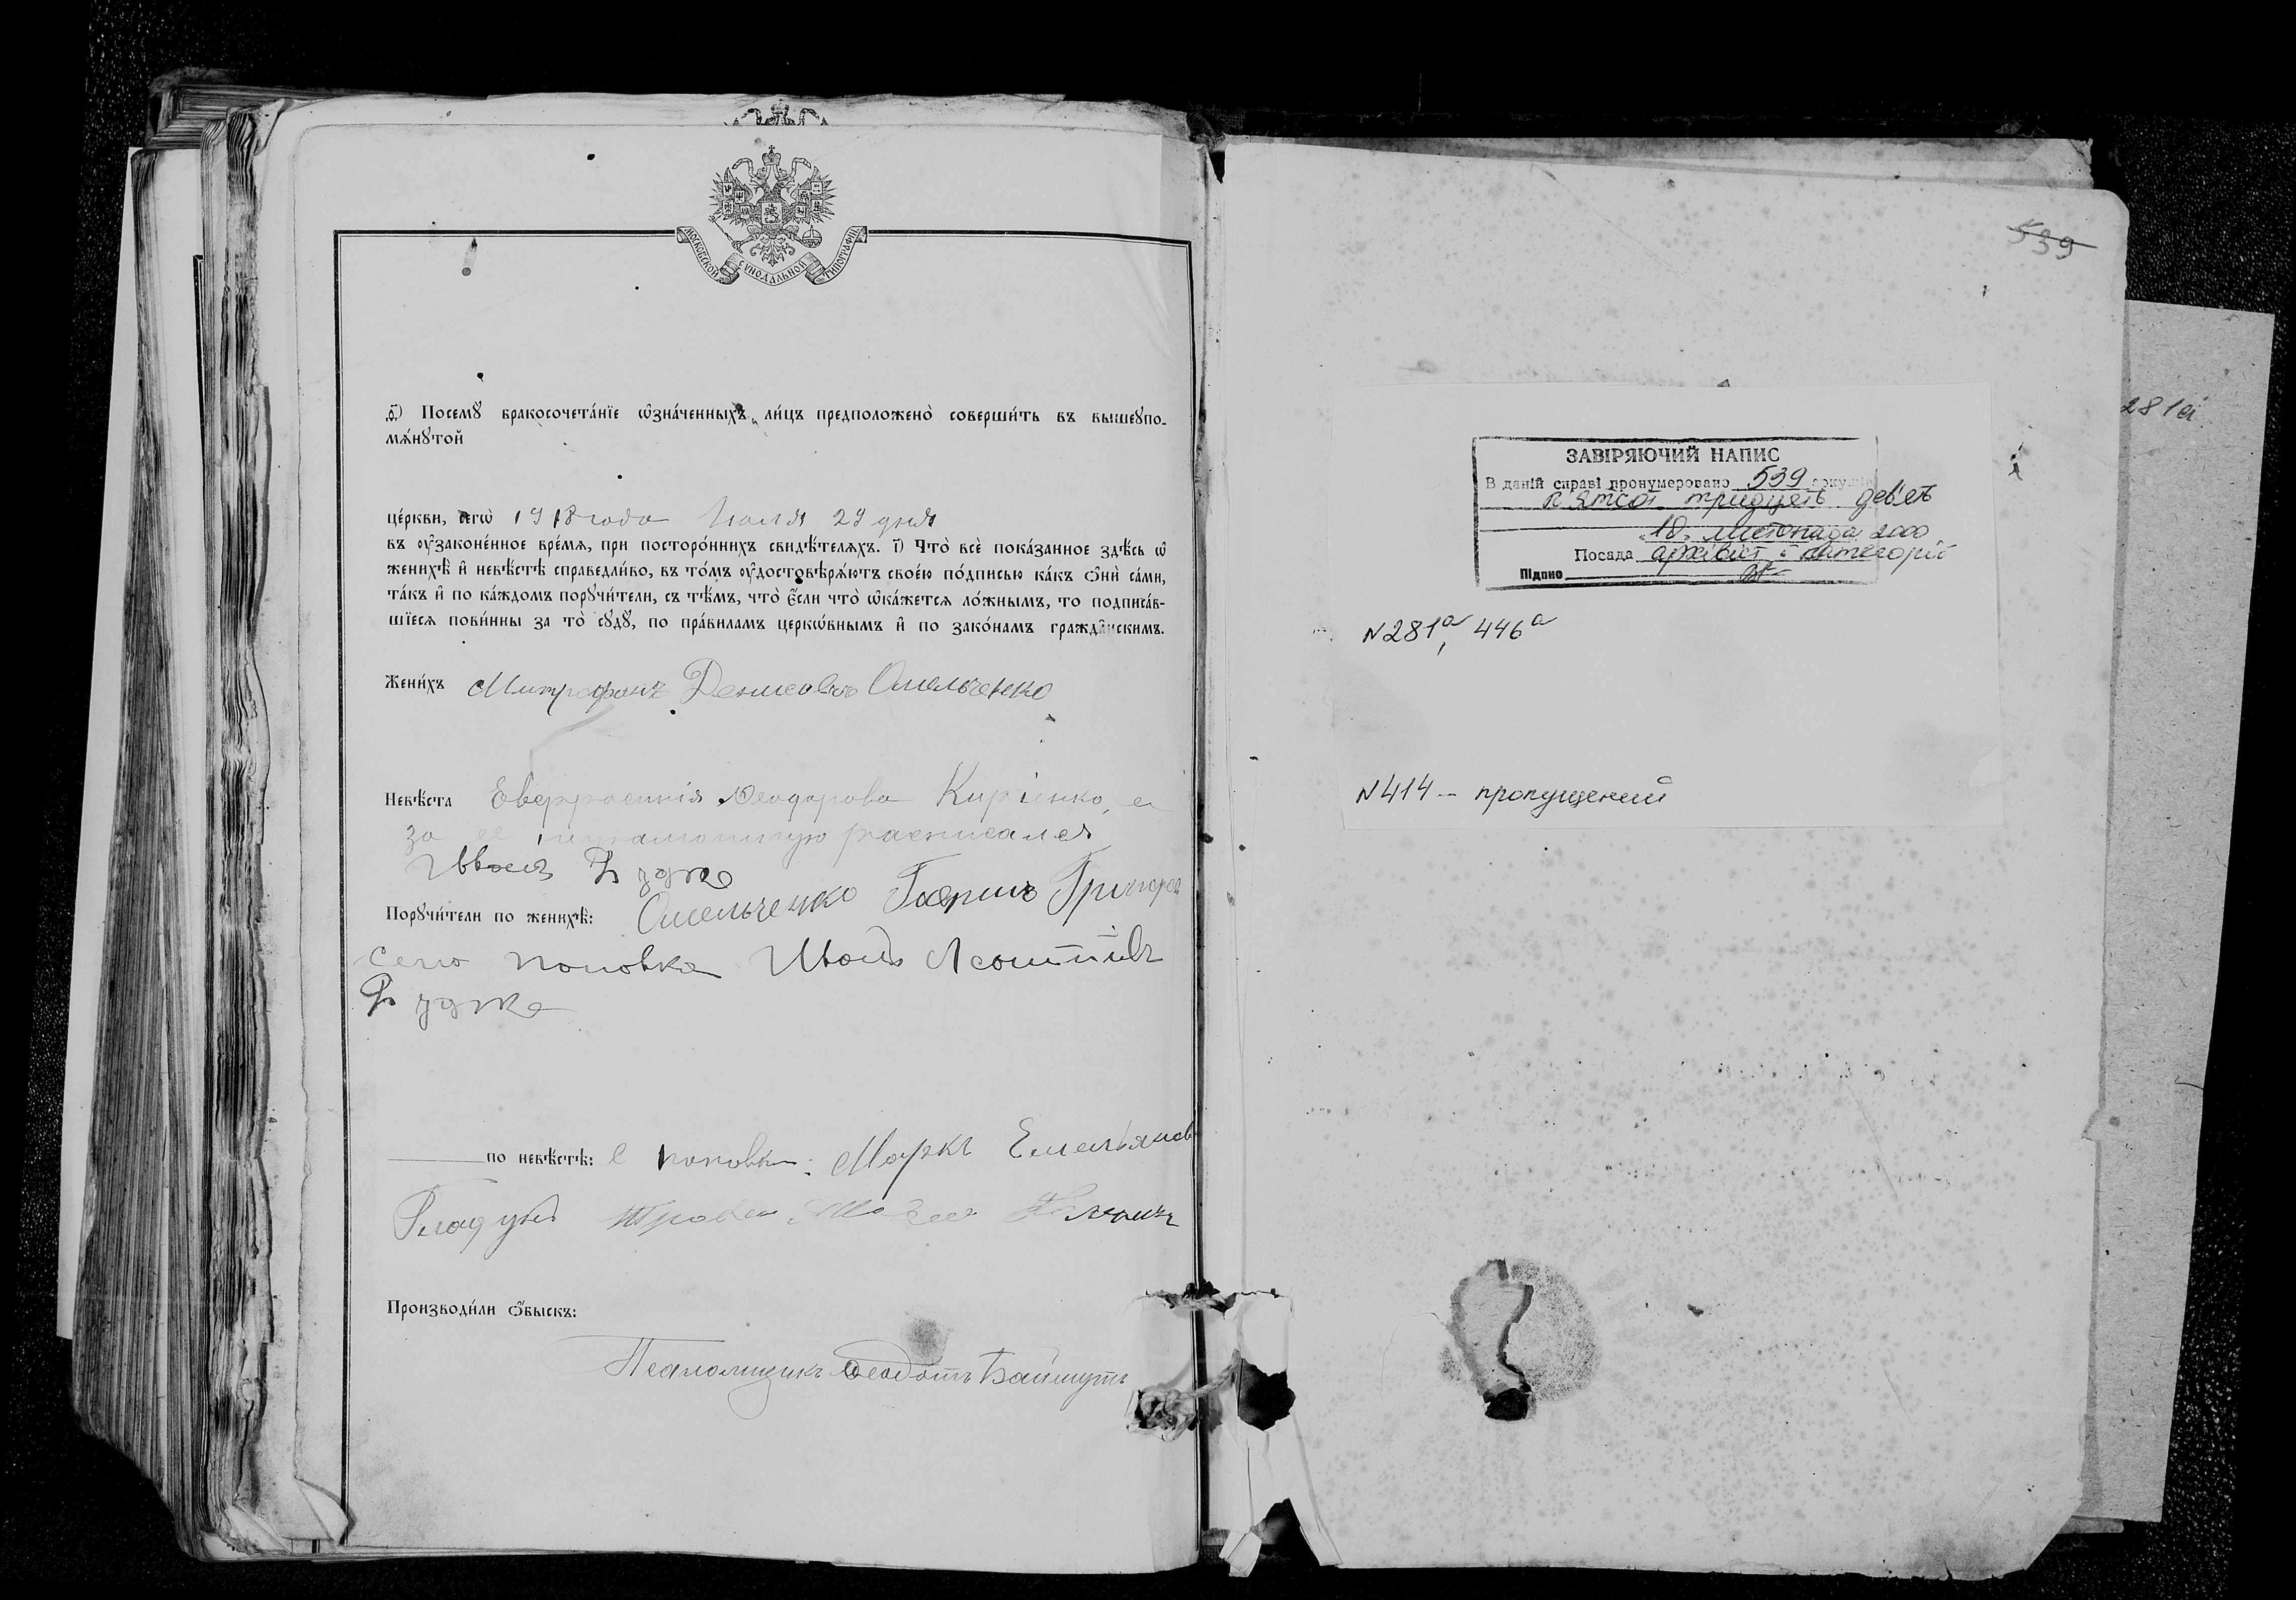 МОСКОВСКОЙ СѴНОДАЛЬНОЙ ТИПОГРАФІИ
Посемꙋ̀ бракосочета́нїе ѡ҆зна́ченныхъ ли́цъ предположено̀ соверши́ть въ вышеꙋпо-
мѧ́нꙋтой
це́ркви, сегѡ̀ 1918 года Іюля 29 дня
въ ᲂу҆законе́нное вре́мѧ, при посторо́ннихъ свидѣ́телѧхъ. і҃) Что̀ всѐ пока́занное здѣ́сь ѡ҆
женихѣ̀ и҆ невѣ́стѣ справедли́во, въ то́мъ ᲂу҆достовѣрѧ́ютъ свое́ю по́дписью ка́къ ѻ҆нѝ са́ми,
та́къ и҆ по ка́ждомъ порꙋчи́тели, съ тѣ́мъ, что̀ є҆́сли что̀ ѡ҆ка́жется ло́жнымъ, то подписа́в-
шїеся пови́нны за то̀ сꙋдꙋ̀, по пра́виламъ церкѡ́внымъ и҆ по зако́намъ гражда́нскимъ.
Жени́хъ Митрофанъ Денисовъ Омельченко
Невѣ́ста Евфросинія Ѳеодорова Киріенко, а
за ее неграмотную расписался
Иванъ
Порꙋчи́тели по женихѣ̀: Омельченко
село поповка Иванъ
по невѣ́стѣ: с поповки Маркъ Емельянов
Гладунъ
Производи́ли ѻ҆́быскъ:
Псаломщикъ Ѳеодотъ
539
281а
ЗАВІРЯЮЧИЙ НАПИС
В даній справі пронумеровано 539 аркушів
п'ятсот тридцять дев'ять
"10" листопада 2000
Посада архівіст і категорії
Підпис
N281а, 446а
N414 – пропущений